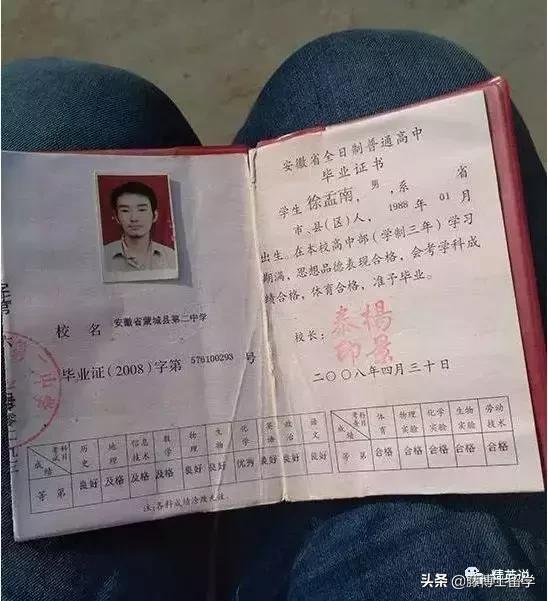 校 名 安徽省蒙城县第二中学
毕业证(2008)字第 576100293 号
考查科目 成绩 历史 地理 信息技术 数学 物理 生物 化学 英语 政治 语文
等第 良好 及格 及格 及格 良好 良好 优秀 良好 良好 良好
注:各科成绩涂改无效.
安徽省全日制普通高中
毕业证书
学生 徐孟南, 男, 系 省
市、县(区)人, 1988 年 01 月
出生。在本校高中部(学制三年)学习
期满, 思想品德表现合格, 会考学科成
绩合格, 体育合格, 准予毕业。
校长: 楊景泰印
二〇〇八年四月三十日
考查科目 成绩 体育 物理实验 化学实验 生物实验 劳动技术
等第 合格 合格 合格 合格 合格
精英说
头条 @滕博士留学